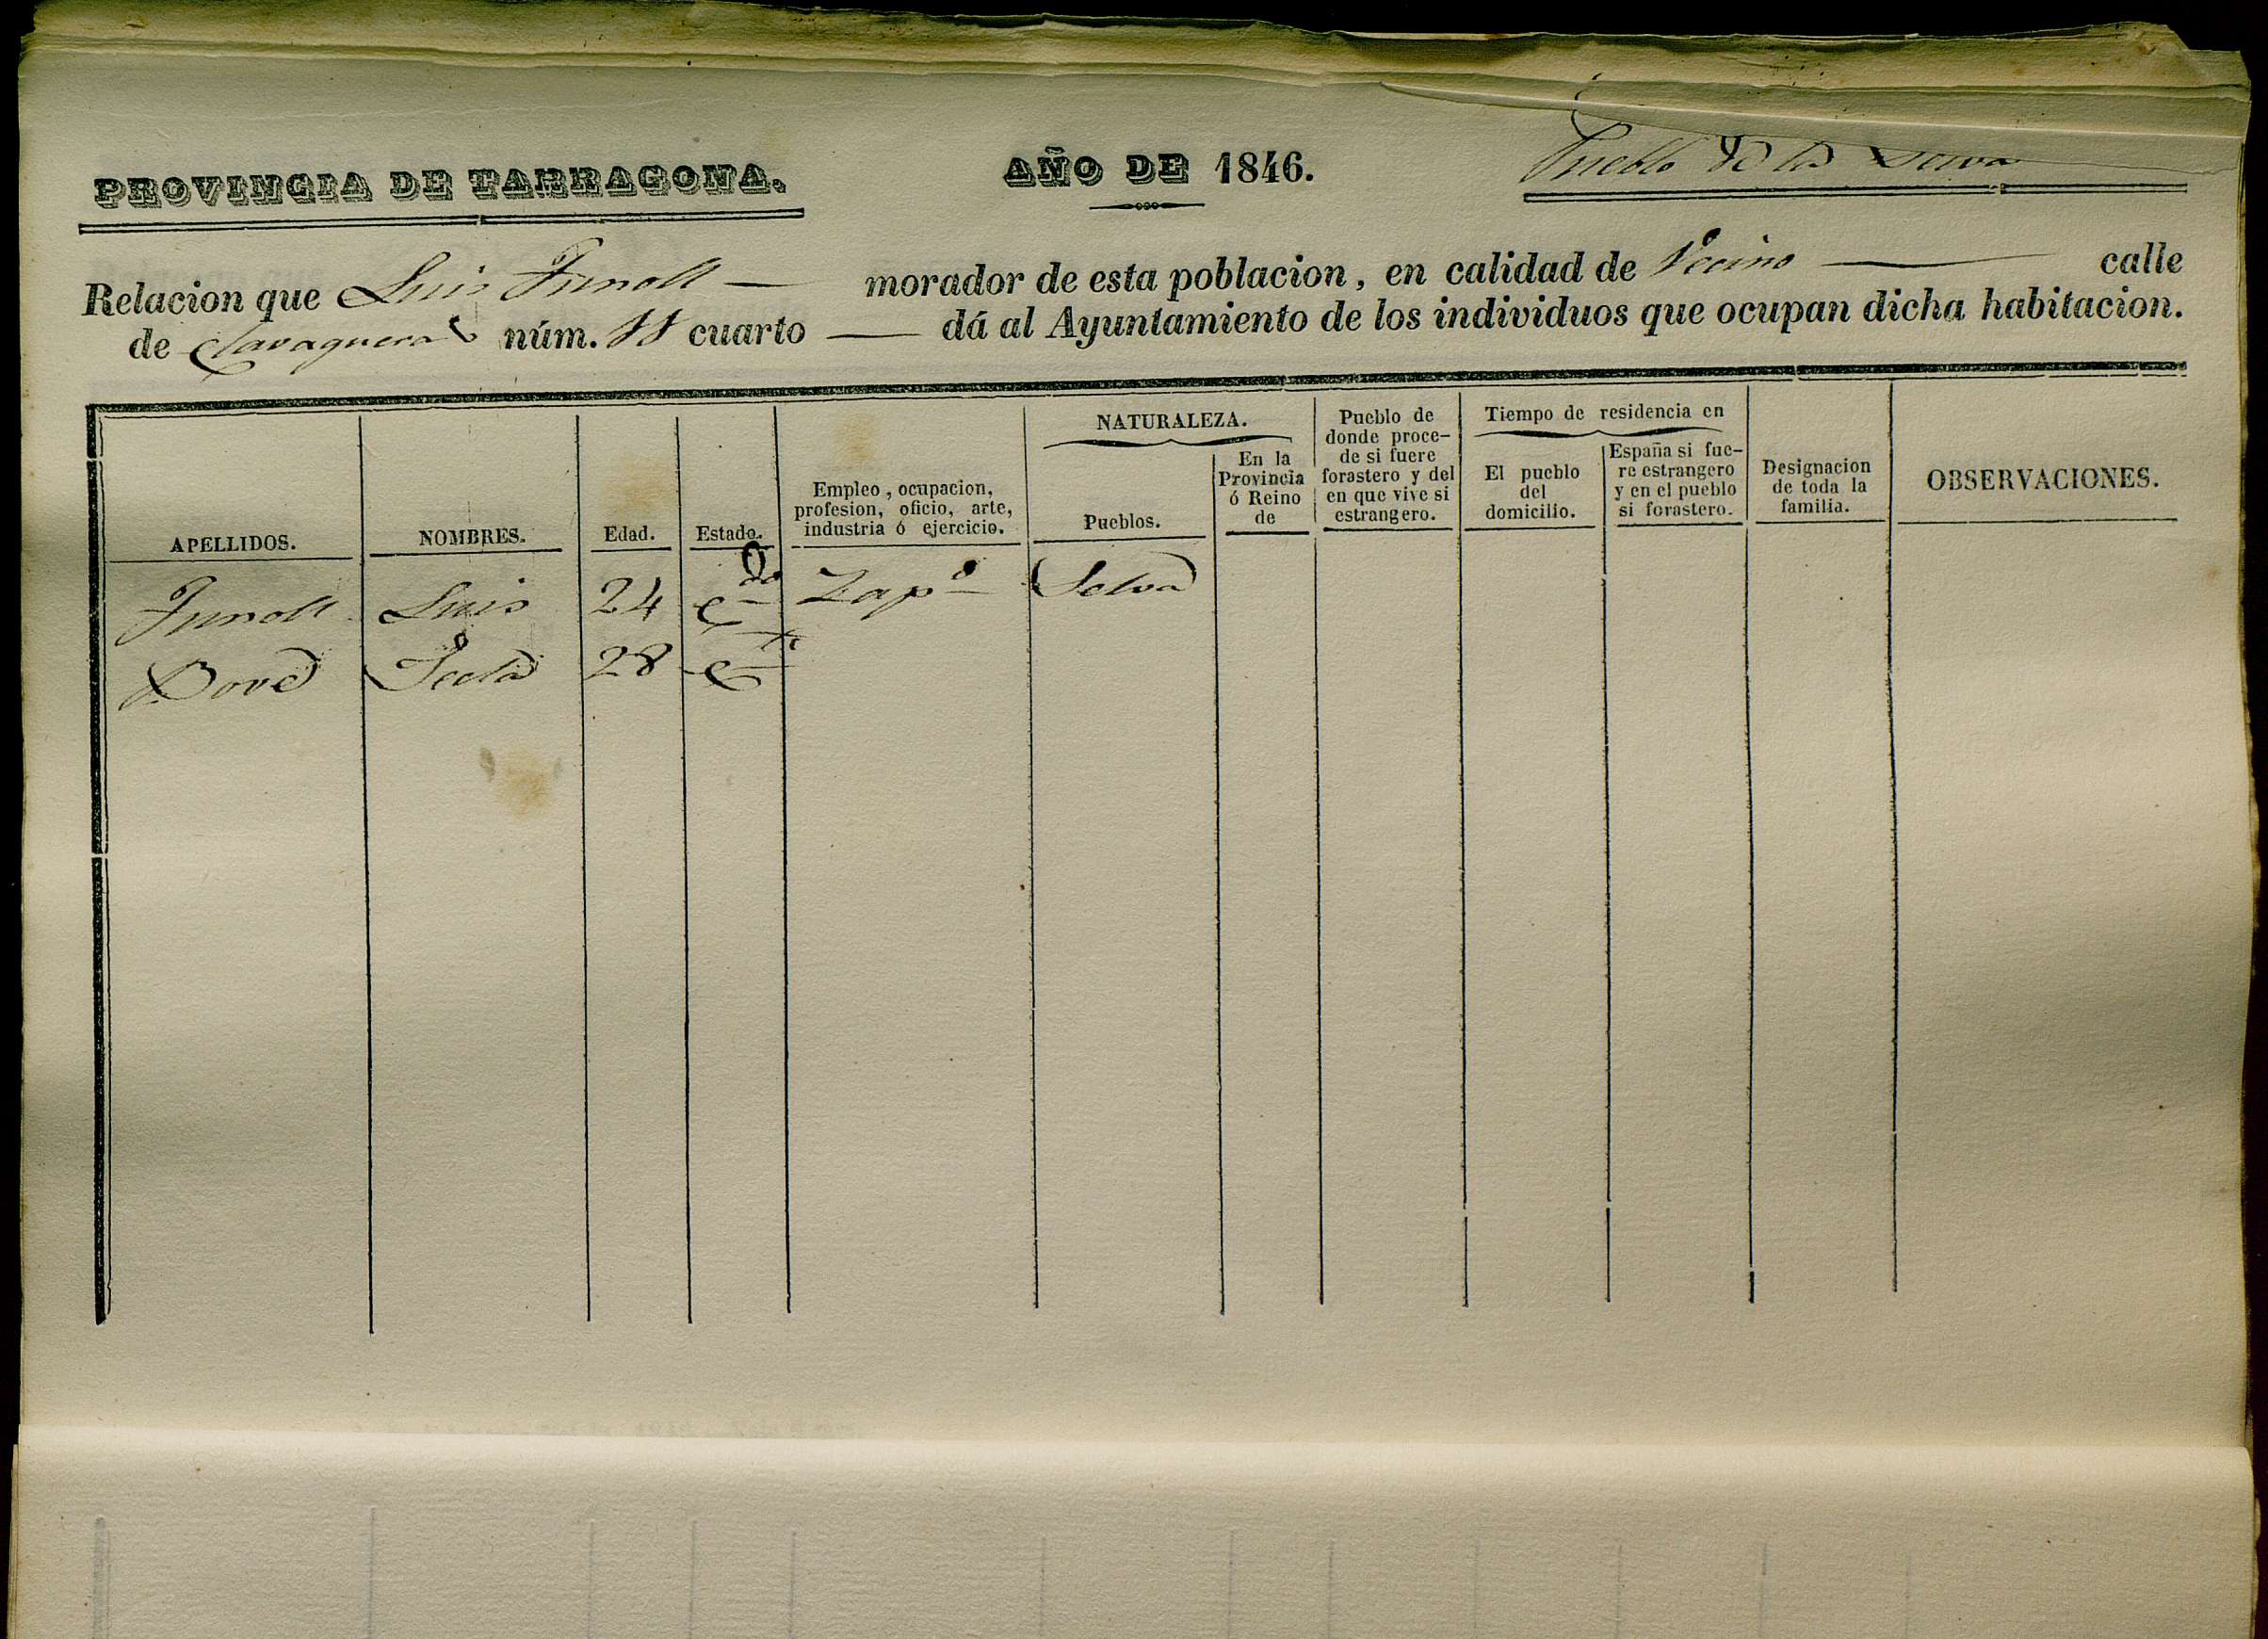 PROVINCIA DE TARRAGONA.
AÑO DE 1846.
Pueblo de la Selva
Relacion que Luis Junoll — morador de esta poblacion, en calidad de Vecino — calle
de Clavaguera núm. 11 cuarto — dá al Ayuntamiento de los individuos que ocupan dicha habitacion.
APELLIDOS.
NOMBRES.
Edad.
Estado.
Empleo, ocupacion,
profesion, oficio, arte,
industria ó ejercicio.
NATURALEZA.
Pueblos.
En la
Provincia
ó Reino
de
Pueblo de
donde proce-
de si fuere
forastero y del
en que vive si
estrangero.
Tiempo de residencia en
El pueblo
del
domicilio.
España si fue-
re estrangero
y en el pueblo
si forastero.
Designacion
de toda la
familia.
OBSERVACIONES.
Junoll Luis 24 C.do Zap.o Selva
Bové Tecla 28 C.